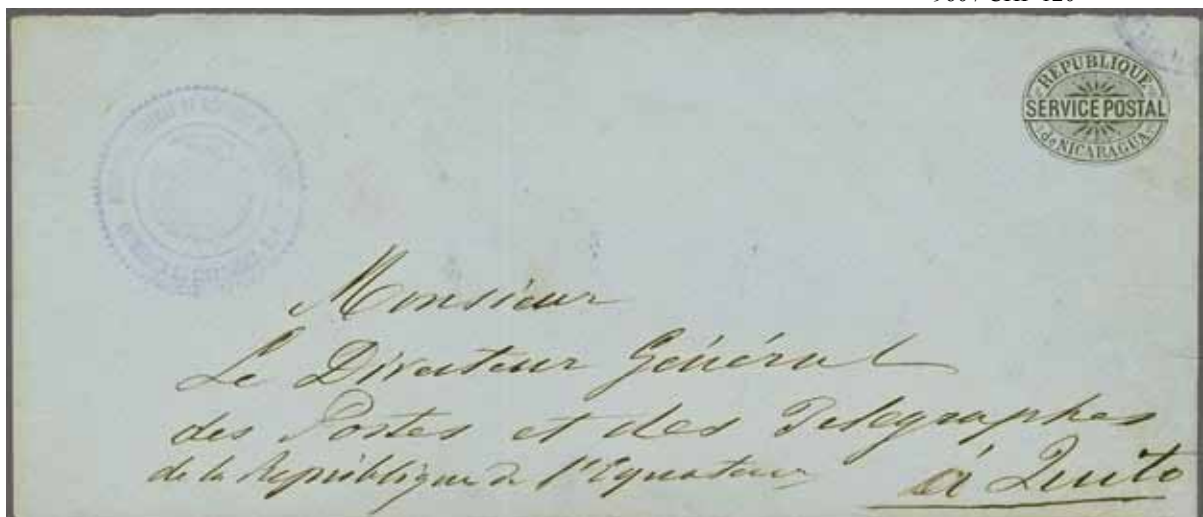 REPUBLIQUE
SERVICE POSTAL
de NICARAGUA
Monsieur
Le Directeur Général
des Postes et des Telegraphes
de la République de l'Equateur à Quito